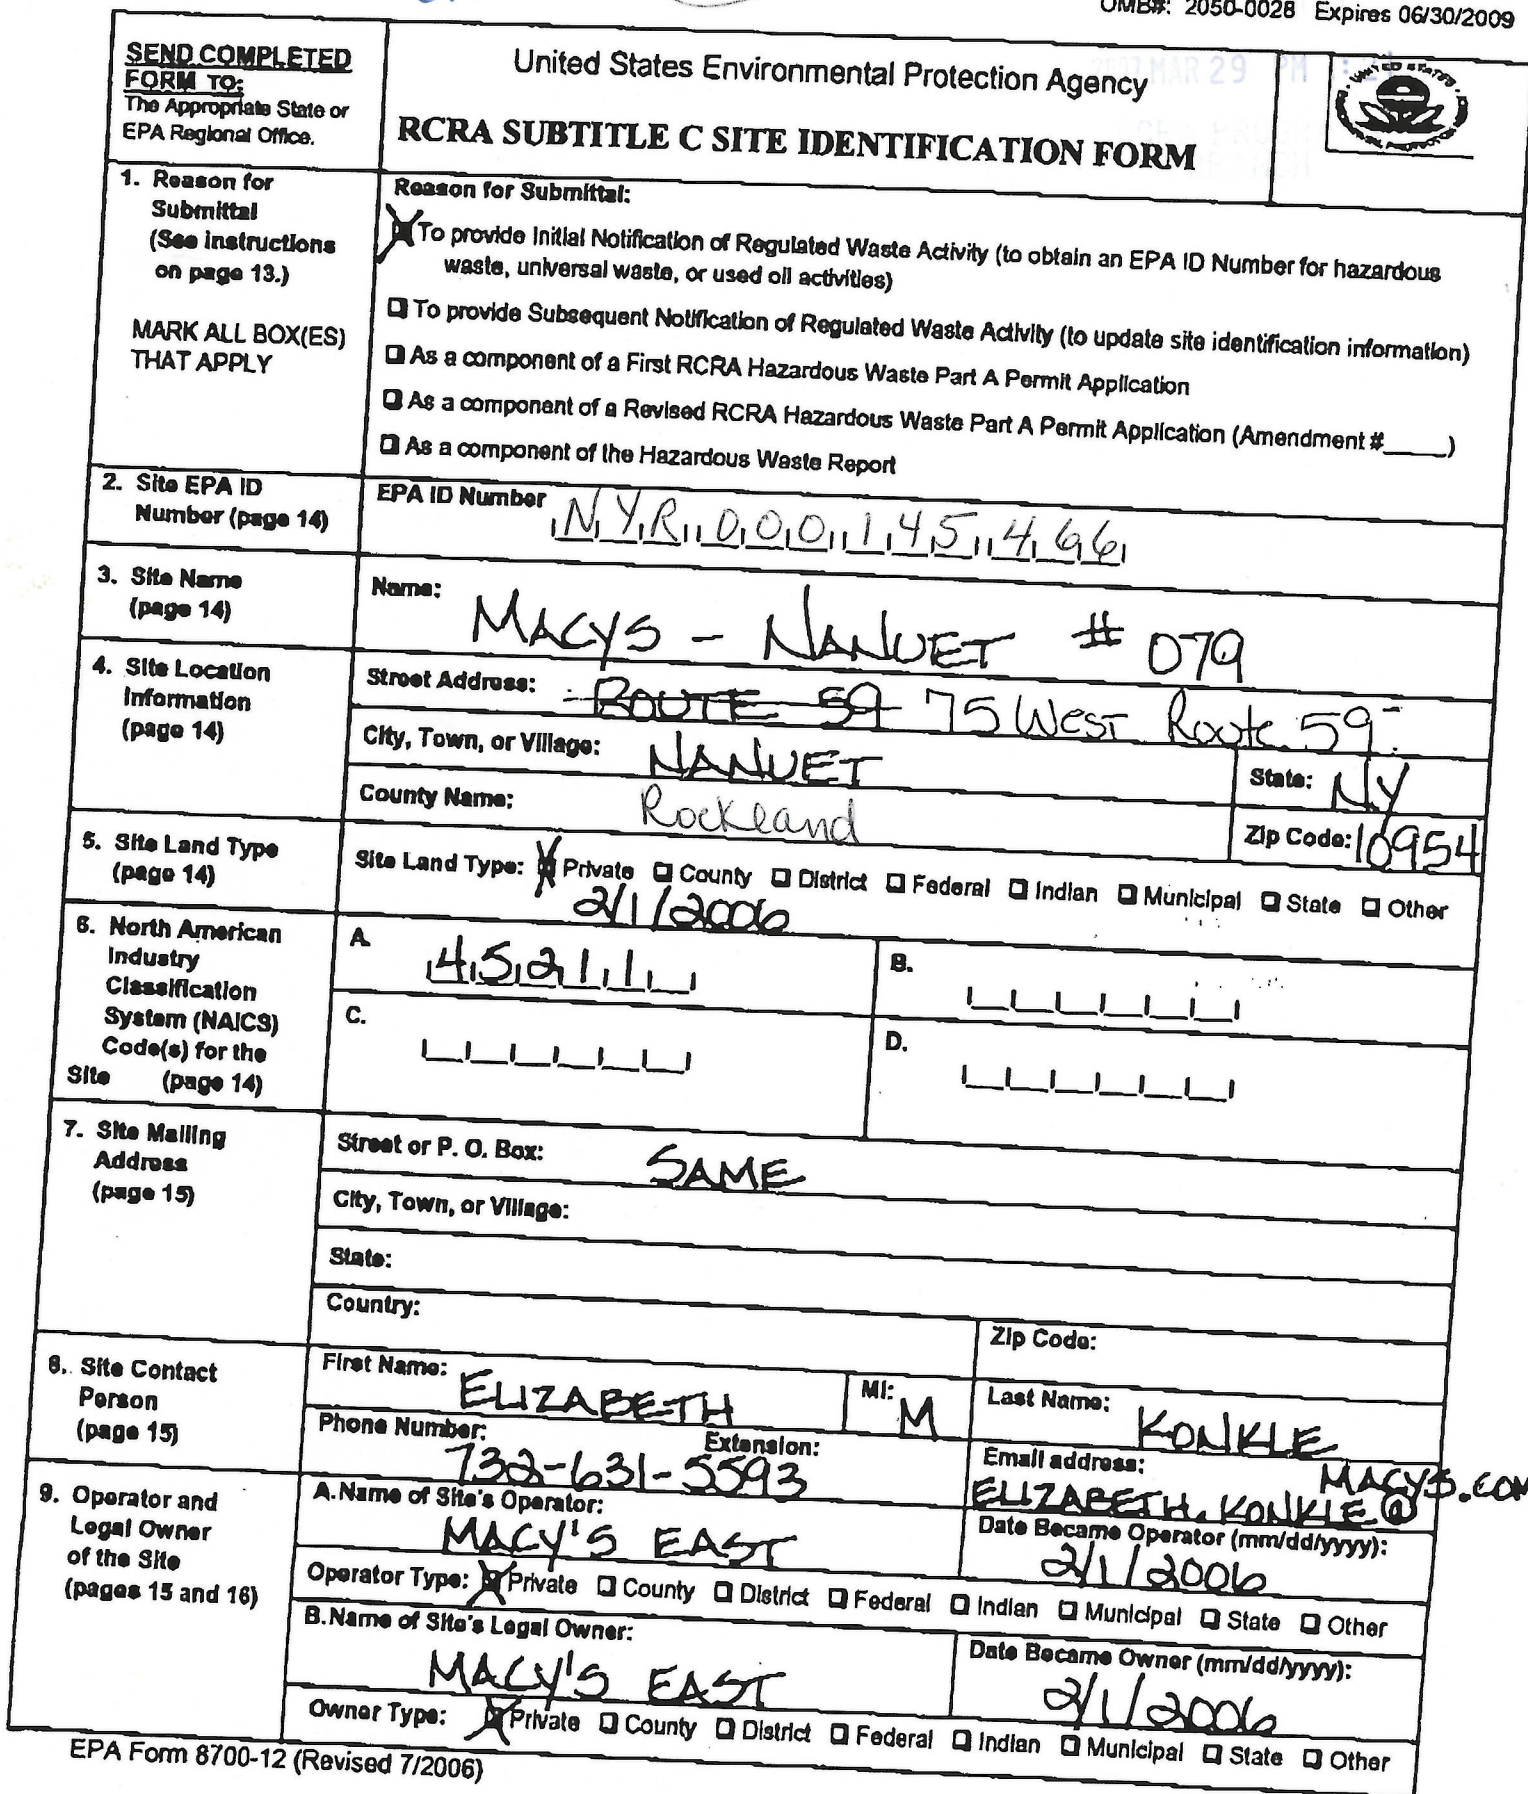 OMB#: 2050-0028 Expires 06/30/2009
SEND COMPLETED
FORM TO:
The Appropriate State or
EPA Regional Office.
United States Environmental Protection Agency
MAR 29 PM
RCRA SUBTITLE C SITE IDENTIFICATION FORM
1. Reason for
Submittal
(See instructions
on page 13.)
MARK ALL BOX(ES)
THAT APPLY
Reason for Submittal:
To provide Initial Notification of Regulated Waste Activity (to obtain an EPA ID Number for hazardous
waste, universal waste, or used oil activities)
To provide Subsequent Notification of Regulated Waste Activity (to update site identification information)
As a component of a First RCRA Hazardous Waste Part A Permit Application
As a component of a Revised RCRA Hazardous Waste Part A Permit Application (Amendment #_____)
As a component of the Hazardous Waste Report
2. Site EPA ID
Number (page 14)
EPA ID Number NYR 000 145 466
3. Site Name
(page 14)
Name: MACYS - NANUET # 079
4. Site Location
Information
(page 14)
Street Address: ROUTE 59 75 West Route 59
City, Town, or Village: NANUET
State: NY
County Name: Rockland
Zip Code: 10954
5. Site Land Type
(page 14)
Site Land Type: Private County District Federal Indian Municipal State Other
2/1/2006
6. North American
Industry
Classification
System (NAICS)
Code(s) for the
Site (page 14)
A. 45211
B.
C.
D.
7. Site Mailing
Address
(page 15)
Street or P. O. Box: SAME
City, Town, or Village:
State:
Country:
Zip Code:
8. Site Contact
Person
(page 15)
First Name: ELIZABETH
MI: M
Last Name: KONKLE
Phone Number: 732-631-5593 Extension:
Email address: ELIZABETH.KONKLE@
MACYS.COM
9. Operator and
Legal Owner
of the Site
(pages 15 and 16)
A.Name of Site's Operator:
MACY'S EAST
Date Became Operator (mm/dd/yyyy):
2/1/2006
Operator Type: Private County District Federal Indian Municipal State Other
B.Name of Site's Legal Owner:
MACY'S EAST
Date Became Owner (mm/dd/yyyy):
2/1/2006
Owner Type: Private County District Federal Indian Municipal State Other
EPA Form 8700-12 (Revised 7/2006)